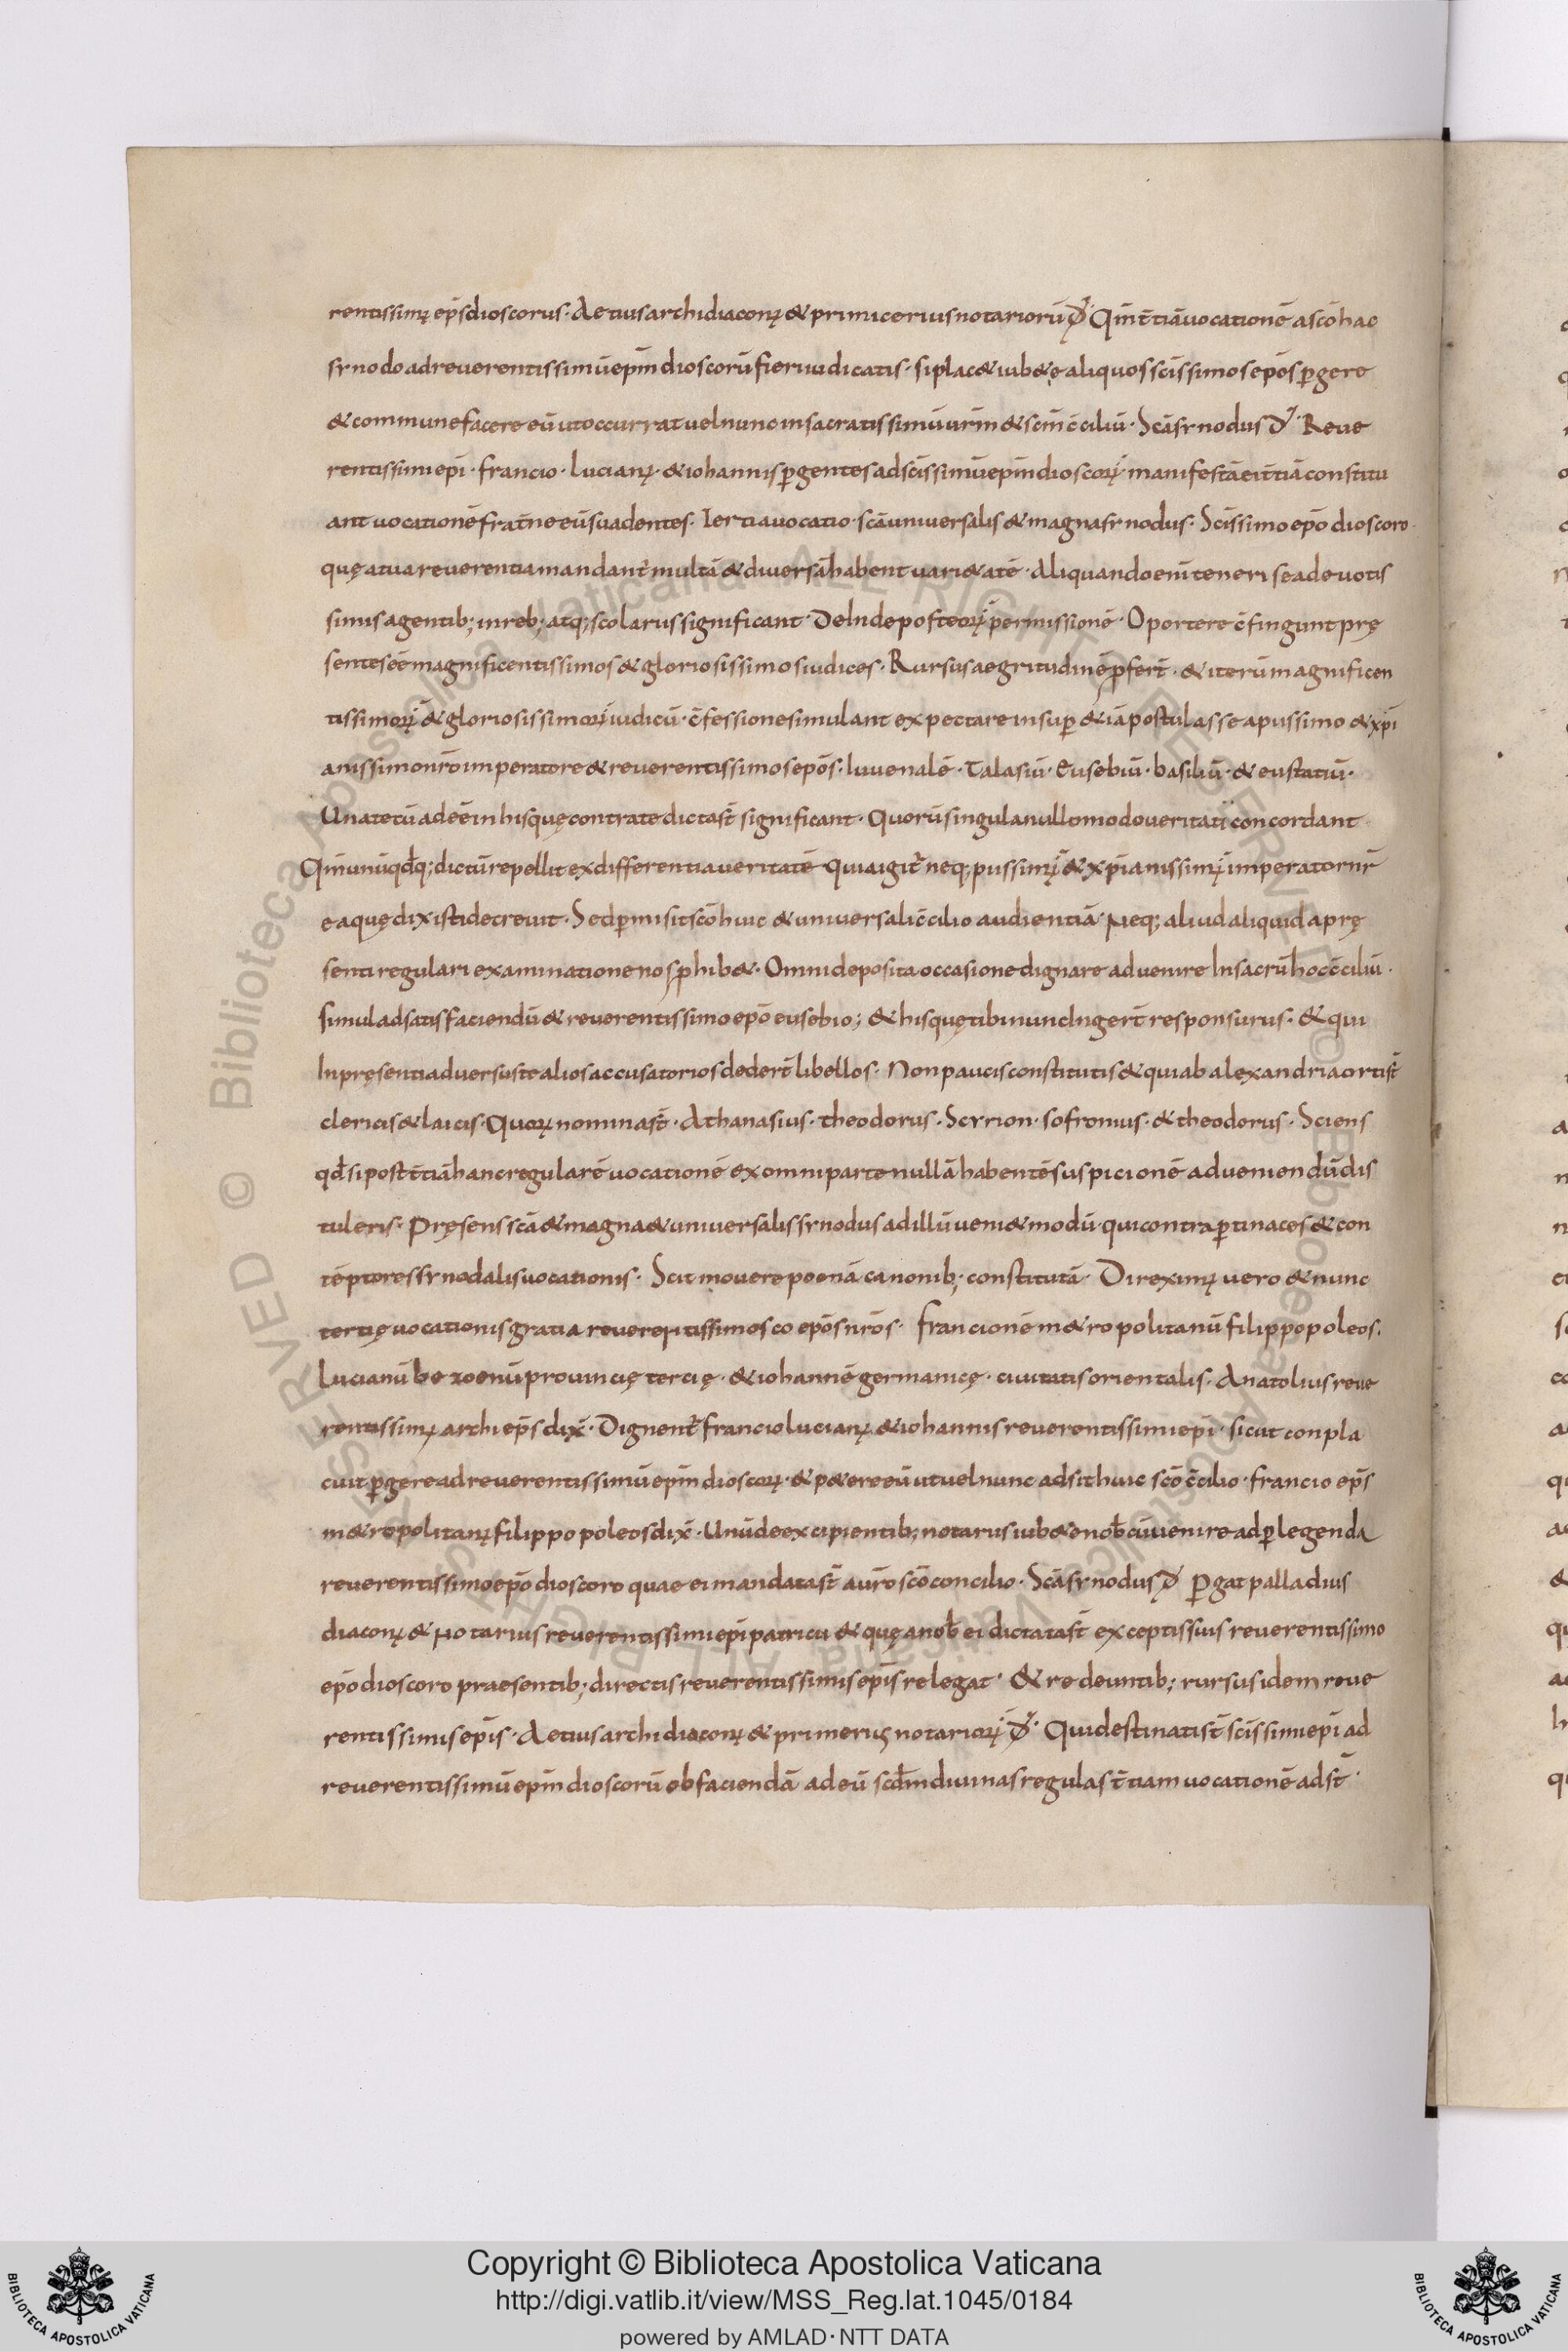 rentissimꝰ ep̅s dioscorus · Aetius archidiaconꝰ & primicerius notariorū đ · Qm̅ t̅tiā vocationē a sc̅o hac
synodo ad reuerentissimū ep̅m dioscorū fieri iudicatis · si plac& iub&ę aliquos sc̅issimos ep̅os ꝑgere
& commune facere eū ut occurrat uel nunc in sacratissimū ur̅m & sc̅m c̅ciliū · Sc̅a synodus đ · Reue
rentissimi ep̅i · francio · lucianꝰ · & iohannis ꝑgentes ad sc̅issimū ep̅m dioscorꝝ · manifestā ei t̅tiā constitu
ant uocationē frat̅ne eū suadentes · Tertia uocatio · sc̅a uniuersalis & magna synodus · Sc̅issimo ep̅o dioscoro ·
quę a tua reuerentia mandant̅ multā & diuersā habent uari&atē · Aliquando eni̅ teneri se a deuotis
simis agentib; in reb; atq; scolariis significant · DeInde post eoꝝ permissionē · Oportere c̅fingunt prę
sentes eē magnificentissimos & gloriosissimos iudices · Rursus aegritudinē ꝓfert̅ · & iterū magnificen
tissimoꝝ & gloriosissimoꝝ iudicū · c̅fessione simulant expectare insuꝑ & iā postulasse a piissimo & xp̅i
anissimo nr̅o imperatore & reuerentissimos ep̅os · Iuuenalē · Talasiū · Eusebiū · basiliū · & eustatiū ·
Una tecū adeē in hisquę contra te dicta st̅ significant · Quorū singula nullomodo ueritati concordant
Qm̅ unūqđq; dictū repellit ex differentia ueritatē Quia igit̅ neq; piissimꝰ & xp̅ianissimꝰ imperator nr̅
ea quę dixisti decreuit · Sed ꝑmisit sc̅o huic & uniuersali c̅cilio audientiā · Neq; aliud aliquid a prę
senti regulari examinatione nos ꝓhib& · Omni deposita occasione dignare aduenire In sacrū hoc c̅ciliū ·
simul ad satisfaciendū & reuerentissimo ep̅o eusebio; & hisquę tibi nunc Ingert̅ responsurus · & qui
In pręsenti aduersus te alios accusatorios dedert̅ libellos · Non paucis constitutis & qui ab alexandria orti st̅
clericis & laicis · Quoꝝ nomina st̅ · Athanasius · theodorus · Scyrion · sofronius · & theodorus · Sciens
qđ si post t̅tiā hanc regularē uocationē ex omni parte nullā habentē suspicionē adueniendū dis
tuleris · Pręsens sc̅a & magna & uniuersalis synodus ad illū ueni& modū · qui contra ꝑtinaces & con
tēptores synodalis uocationis · Scit mouere poenā canonib; constitutā · Direximꝰ uero & nunc
tertię uocationis gratia reuerentissimos coep̅os nr̅os · francionē m&ropolitanū filippopoleos ·
Lucianū bezoenū prouincię tercię · & iohannē germanicę · ciuitatis orientalis · Anatolius reue
rentissimꝰ archiep̅s dix̅ · Dignent̅ francio lucianꝰ & iohannis reuerentissimi ep̅i · sicut conpla
cuit ꝑgere ad reuerentissimū ep̅m dioscorꝝ · & p&ere eū ut uel nunc adsit huic sc̅o c̅cilio · francio ep̅s
m&ropolitanꝰ filippopoleos dix̅ · Unū de excipientib; notariis iub&e nob̅cū uenire ad ꝑlegenda
reuerentissimo ep̅o dioscoro quae ei mandata st̅ a ur̅o sc̅o concilio · Sc̅a synodus đ ꝑgat palladius
diaconꝰ & Notarius reuerentissimi ep̅i patricii & quę a nob̅ ei dictata st̅ exceptis suis reuerentissimo
ep̅o dioscoro praesentib; directis reuerentissimis ep̅is relegat · & redeuntib; rursus idem reue
rentissimis ep̅is · Aetius archidiaconꝰ & primerius notarioꝝ đ · Qui destinati st̅ sc̅issimi ep̅i ad
reuerentissimū ep̅m dioscorū ob faciendā ad eū scđm diuinas regulas t̅tiam uocationē adst̅ ·
Copyright © Biblioteca Apostolica Vaticana
http://digi.vatlib.it/view/MSS_Reg.lat.1045/0184
powered by AMLAD · NTT DATA